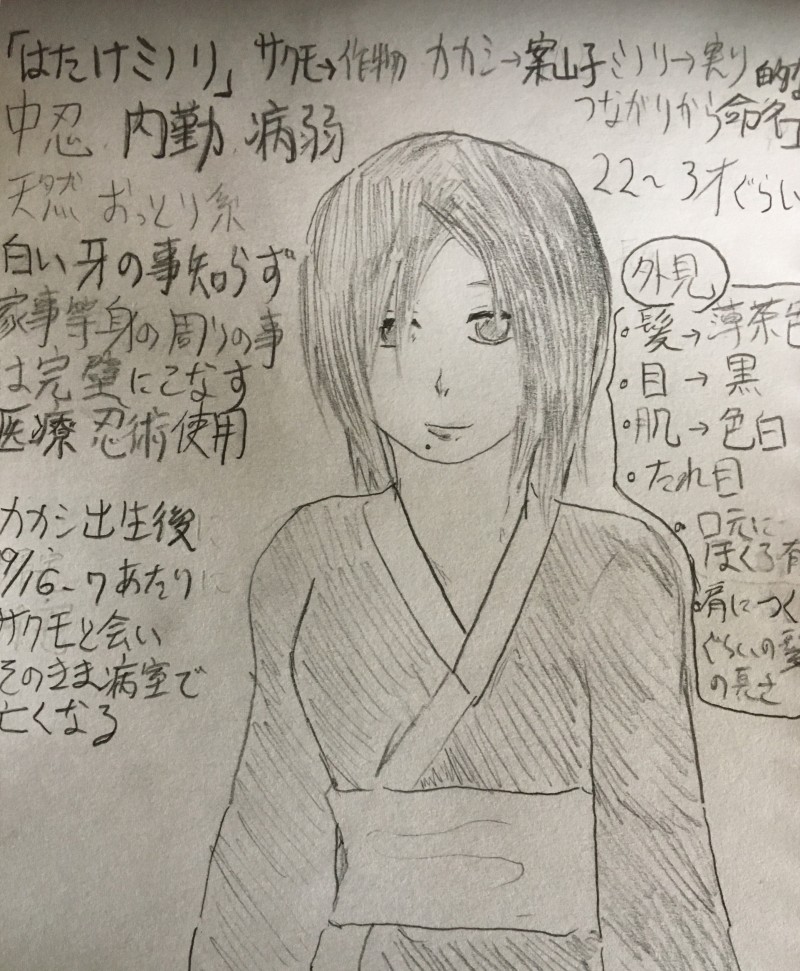 「はたけミノリ」 サクモ→作物 カカシ→案山子 ミノリ→実り 的な
つながりから命名
中忍 内勤 病弱
22〜3才ぐらい
天然 おっとり系
白い牙の事知らず
家事等身の周りの事
は完璧にこなす
医療忍術使用
カカシ出生後
9/16-7あたり
サクモと会い
そのまま病室で
亡くなる
外見
・髪→薄茶色
・目→黒
・肌→色白
・たれ目
・口元に
ほくろ有
・肩につく
ぐらいの髪
の長さ